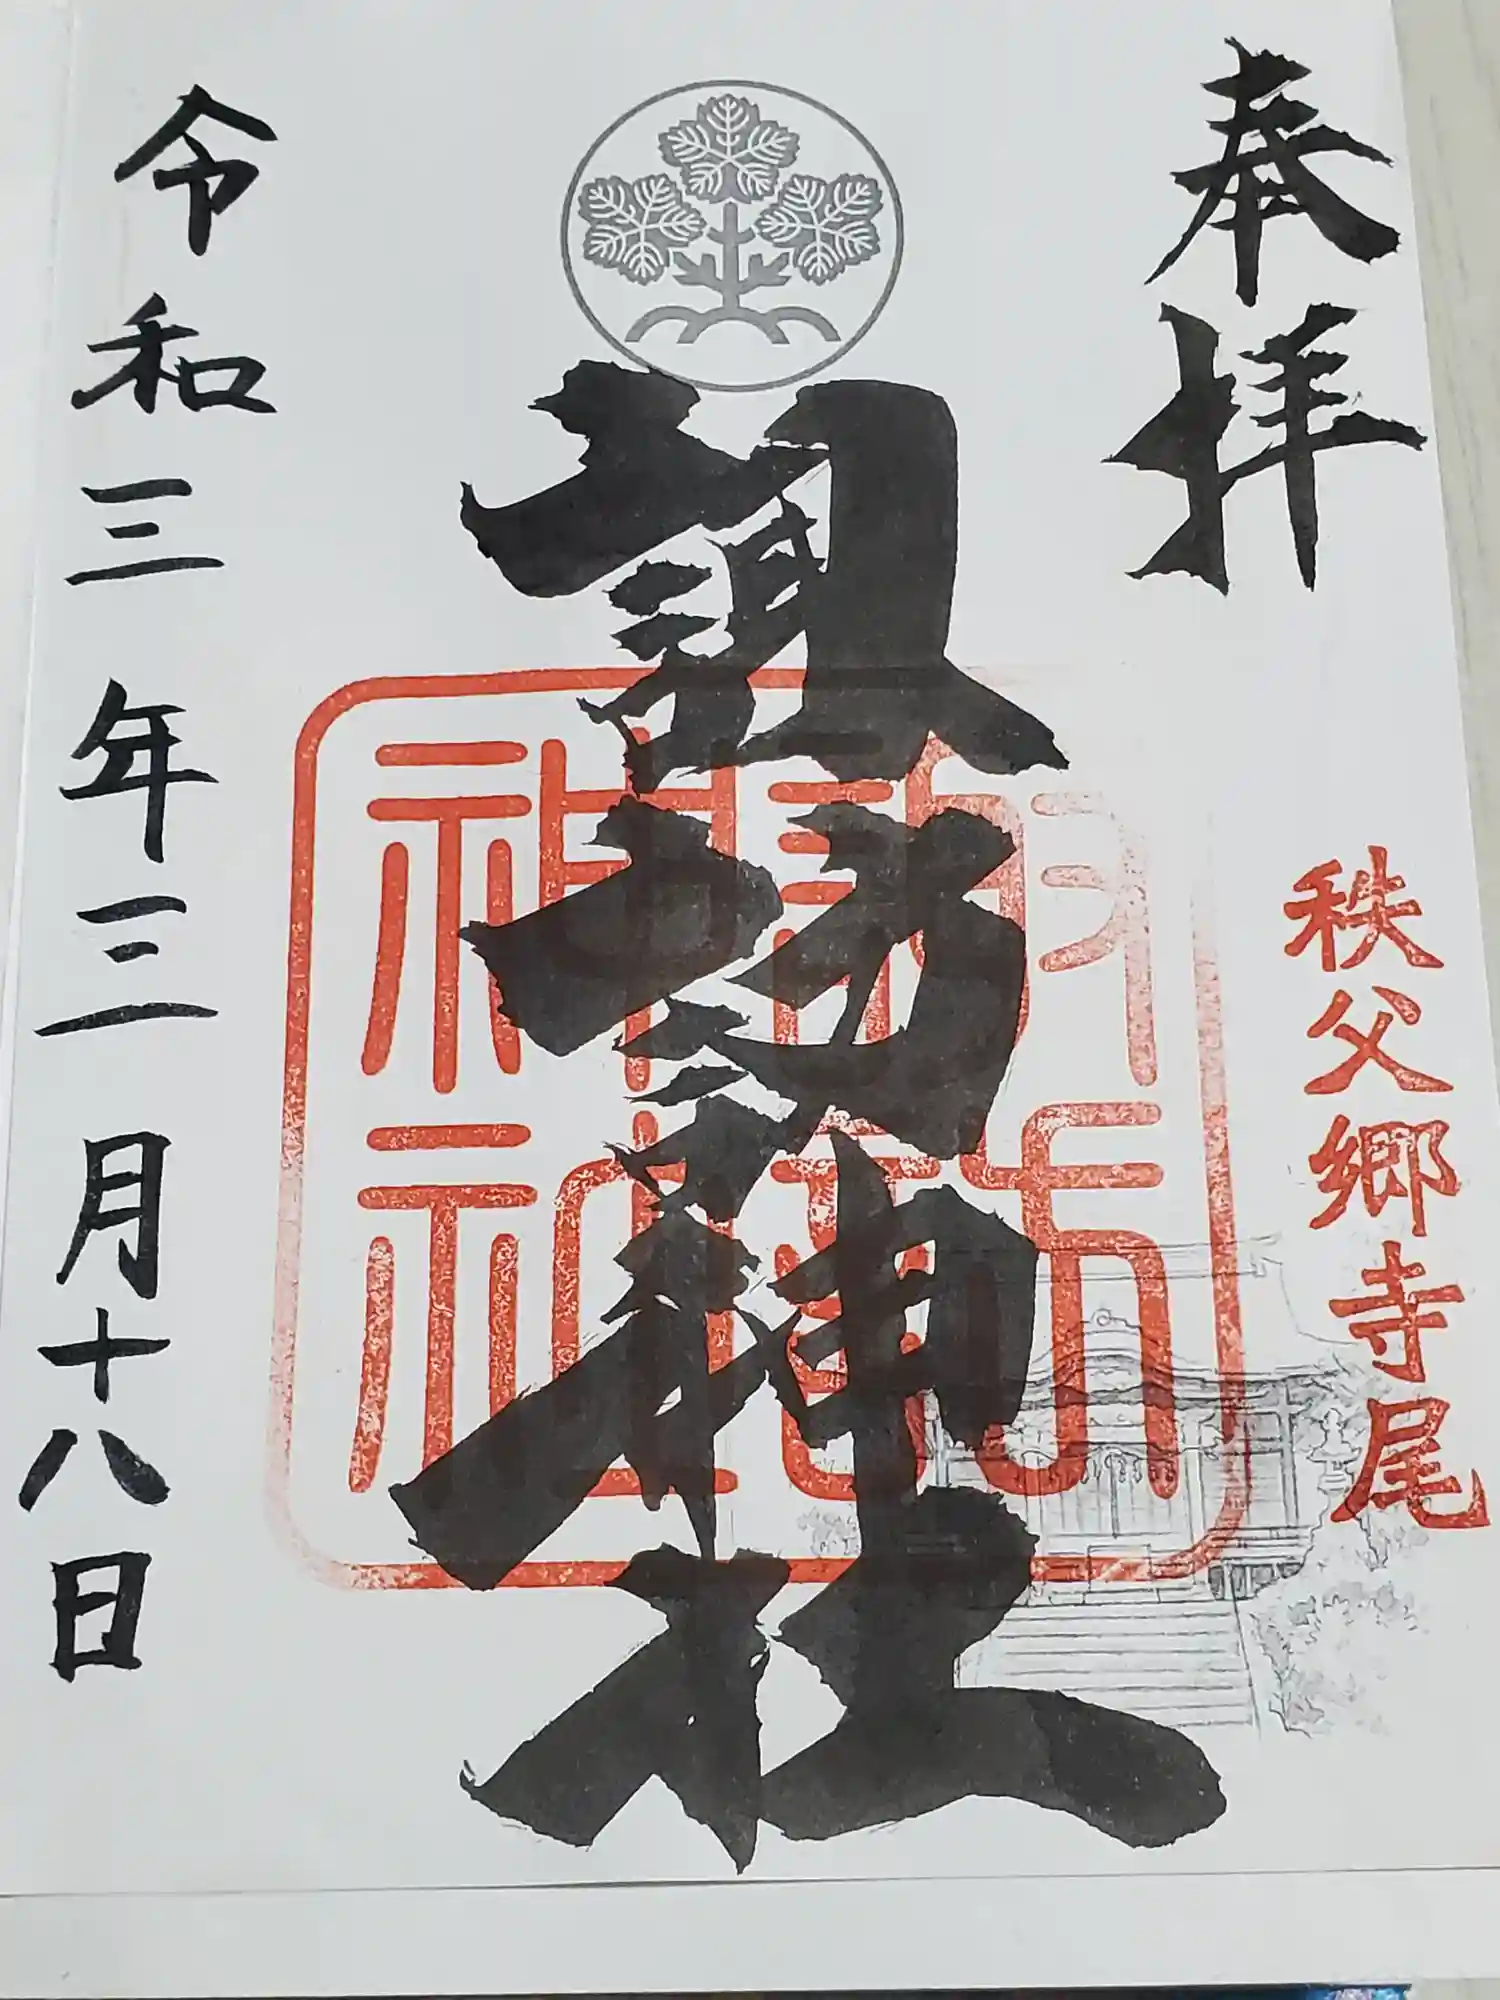 奉拝
秩父郷寺尾
諏訪神社
諏訪
神社
令和三年三月十八日